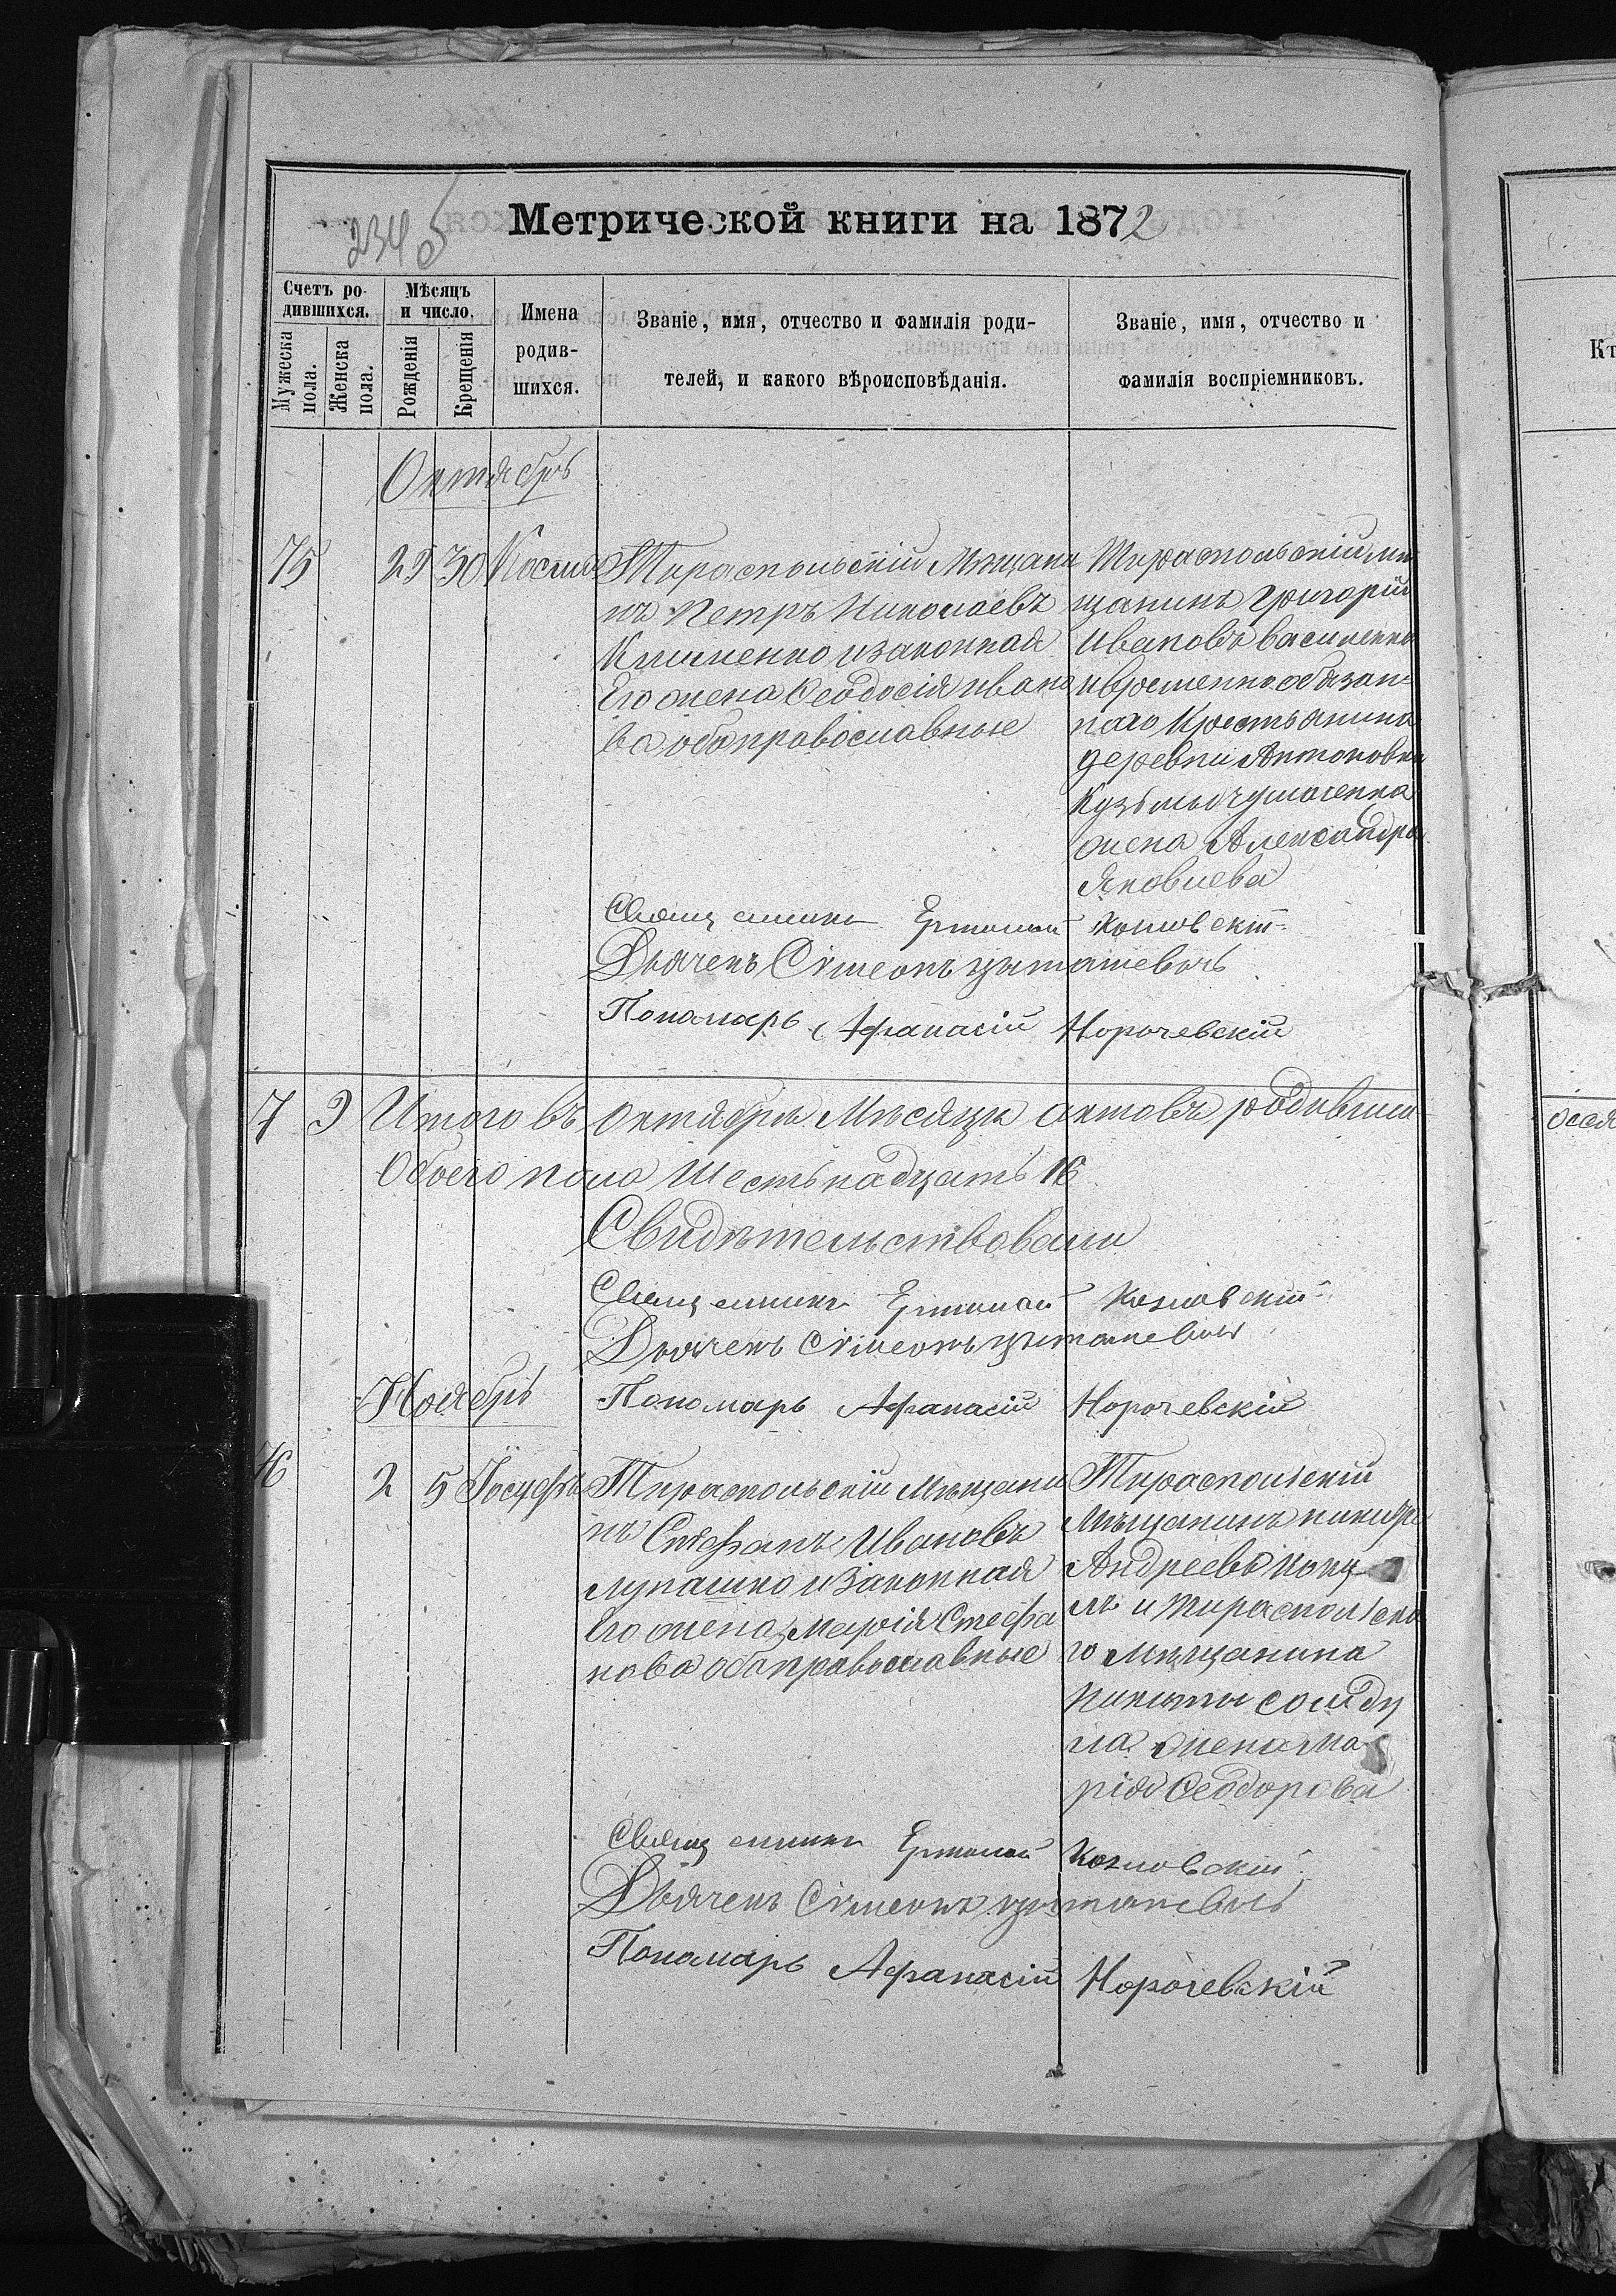 2345
Метрической книги на 1872
Счетъ ро-
дившихся.
Мужеска пола.
Женска пола.
Мѣсяцъ
и число.
Рожденія
Крещенія
Имена
родив-
шихся.
Званіе, имя, отчество и фамилія роди-
телей, и какого вѣроисповѣданія.
Званіе, имя, отчество и
фамилія воспріемниковъ.
Октябрь
75 29 30 Косма
Тираспольскій Мѣщани
нъ Петръ Николаевъ
Клименко и законная
Его жена Ѳеодосія Ивано
ва оба православные
Тираспольскій мѣ
щанинъ Григорій
Ивановъ Василенко
и временно обязан-
наго Крестьянина
деревни Антоновки
Кузьмы
жена Александра
Яковлева
Священникъ Ермолай Козловскій
Дьячекъ Сѵмеонъ
Пономарь Афанасій Норочевскій
7 9 Итого въ Октябрѣ Мѣсяцѣ актовъ родивших
Обоего пола Шестьнадцать 16
Свидѣтельствовали
Священникъ Ермолай Козловскій
Дьячекъ Сѵмеонъ
Пономарь Афанасій Норочевскій
Ноябрь
76 2 5 Іосифъ
Тираспольскій Мѣщани
нъ Стефанъ Ивановъ
Лупашко и Законная
Его жена Марія Стефа
нова оба православные
Тираспольскій
Мѣщанинъ
Андреевъ
и Тираспольска
го Мѣщанина
Никиты
жена Ма
рія Ѳеодорова
Священникъ Ермолай Козловскій
Дьячекъ Сѵмеонъ
Пономарь Афанасій Норочевскій
Кт